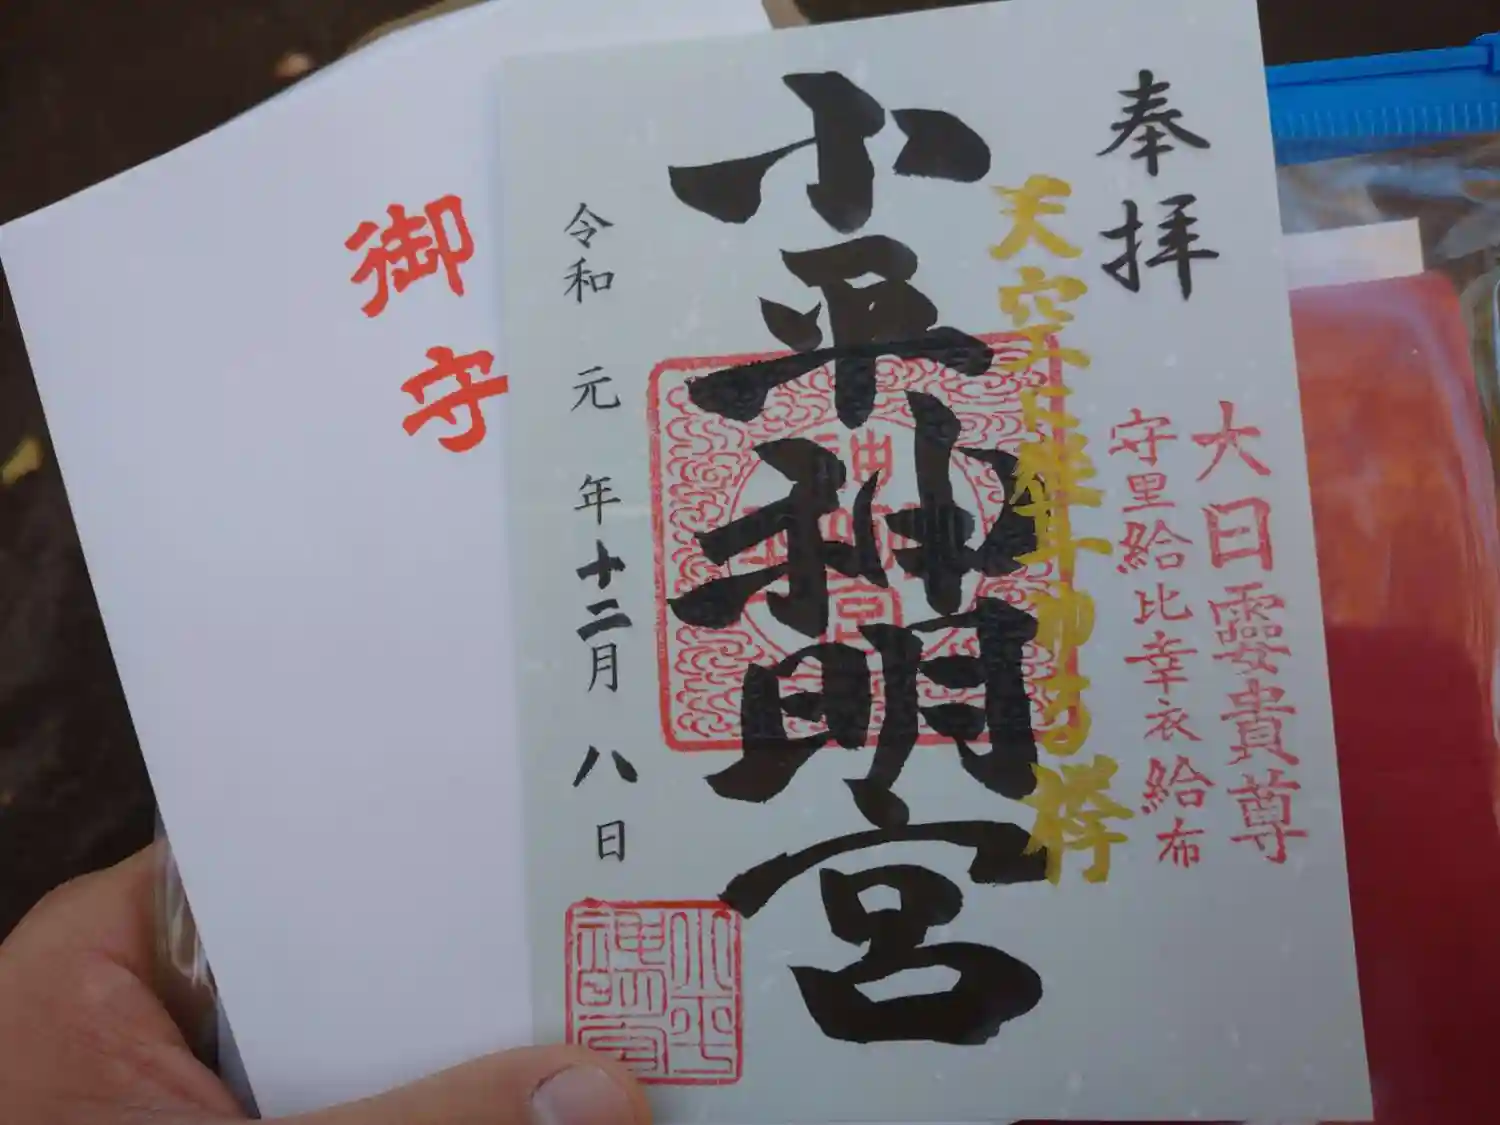 奉拝
大日孁貴尊
守里給比幸衣給布
天空に聳ゆる欅
小平神明宮
令和元年十二月八日
小平神明宮
御守